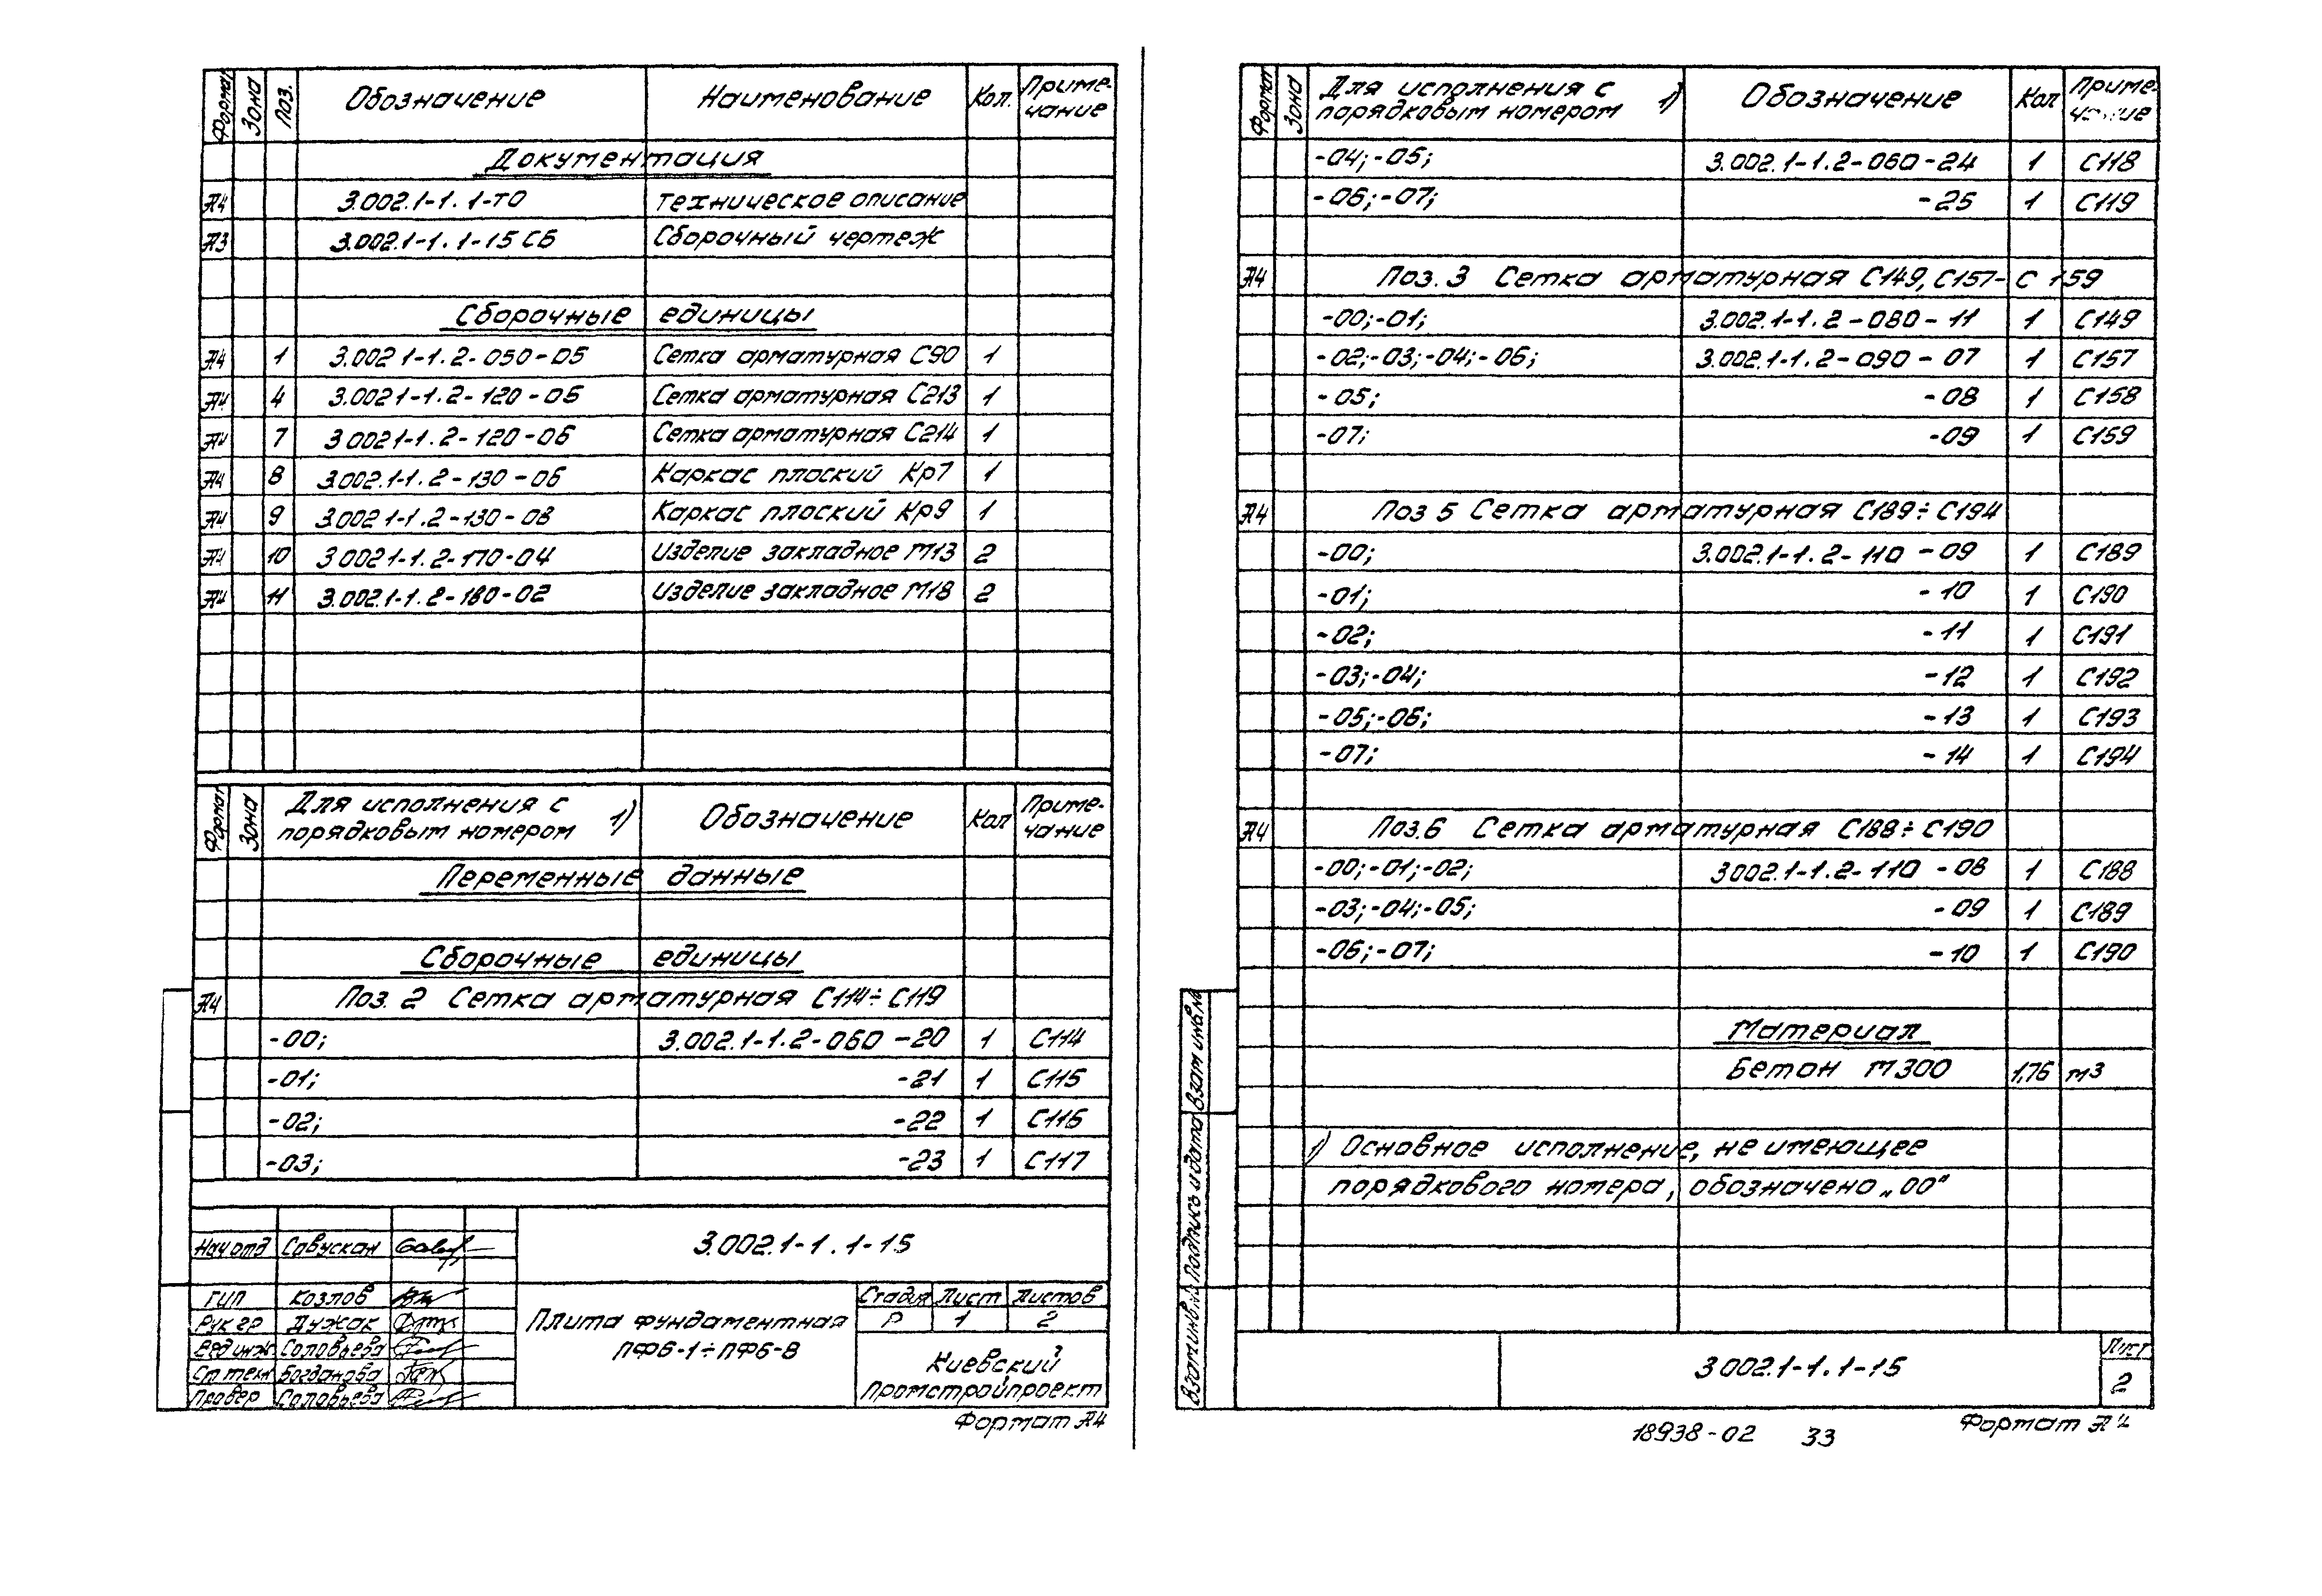 Формат Зона Поз. Обозначение Наименование Кол. Приме-
чание
Документация
А4 3.002.1-1.1-ТО Техническое описание
А3 3.002.1-1.1-15 СБ Сборочный чертеж
Сборочные единицы
А4 1 3.002 1-1.2-050-05 Сетка арматурная С90 1
А4 4 3.002 1-1.2-120-05 Сетка арматурная С213 1
А4 7 3 002 1-1.2-120-06 Сетка арматурная С214 1
А4 8 3.002.1-1.2-130-06 Каркас плоский Кр7 1
А4 9 3.002 1-1.2-130-08 Каркас плоский Кр9 1
А4 10 3 002 1-1.2-170-04 Изделие закладное М13 2
А4 11 3.002.1-1.2-180-02 Изделие закладное М18 2
Формат Зона Для исполнения с
порядковым номером 1) Обозначение Кол Приме-
чание
Переменные данные
Сборочные единицы
А4 Поз. 2 Сетка арматурная С114÷С119
-00; 3.002.1-1.2-060-20 1 С114
-01; -21 1 С115
-02; -22 1 С116
-03; -23 1 С117
3.002.1-1.1-15
Нач отд Савускан
ГИП Козлов
Рук гр Дужак
Вед инж Соловьева
Ст техн Богданова
Провер Соловьева
Плита фундаментная
ПФ6-1÷ПФ6-8
Стадия Лист Листов
Р 1 2
Киевский
Промстройпроект
Формат А4
Формат Зона Для исполнения с
порядковым номером 1) Обозначение Кол Приме-
чание
-04;-05; 3.002.1-1.2-060-24 1 С118
-06;-07; -25 1 С119
А4 Поз. 3 Сетка арматурная С149, С157-С159
-00;-01; 3.002.1-1.2-080-11 1 С149
-02;-03;-04;-06; 3.002.1-1.2-090-07 1 С157
-05; -08 1 С158
-07; -09 1 С159
А4 Поз 5 Сетка арматурная С189÷С194
-00; 3.002.1-1.2-110-09 1 С189
-01; -10 1 С190
-02; -11 1 С191
-03;-04; -12 1 С192
-05;-06; -13 1 С193
-07; -14 1 С194
А4 Поз.6 Сетка арматурная С188÷С190
-00;-01;-02; 3 002.1-1.2-110-08 1 С188
-03;-04;-05; -09 1 С189
-06;-07; -10 1 С190
Материал
Бетон М300 1,76 м3
1) Основное исполнение, не имеющее
порядкового номера, обозначено „00"
Взам инв.№
Подпись и дата
Взам инв.№
3 002.1-1.1-15
Лист
2
18938-02 33
Формат А4